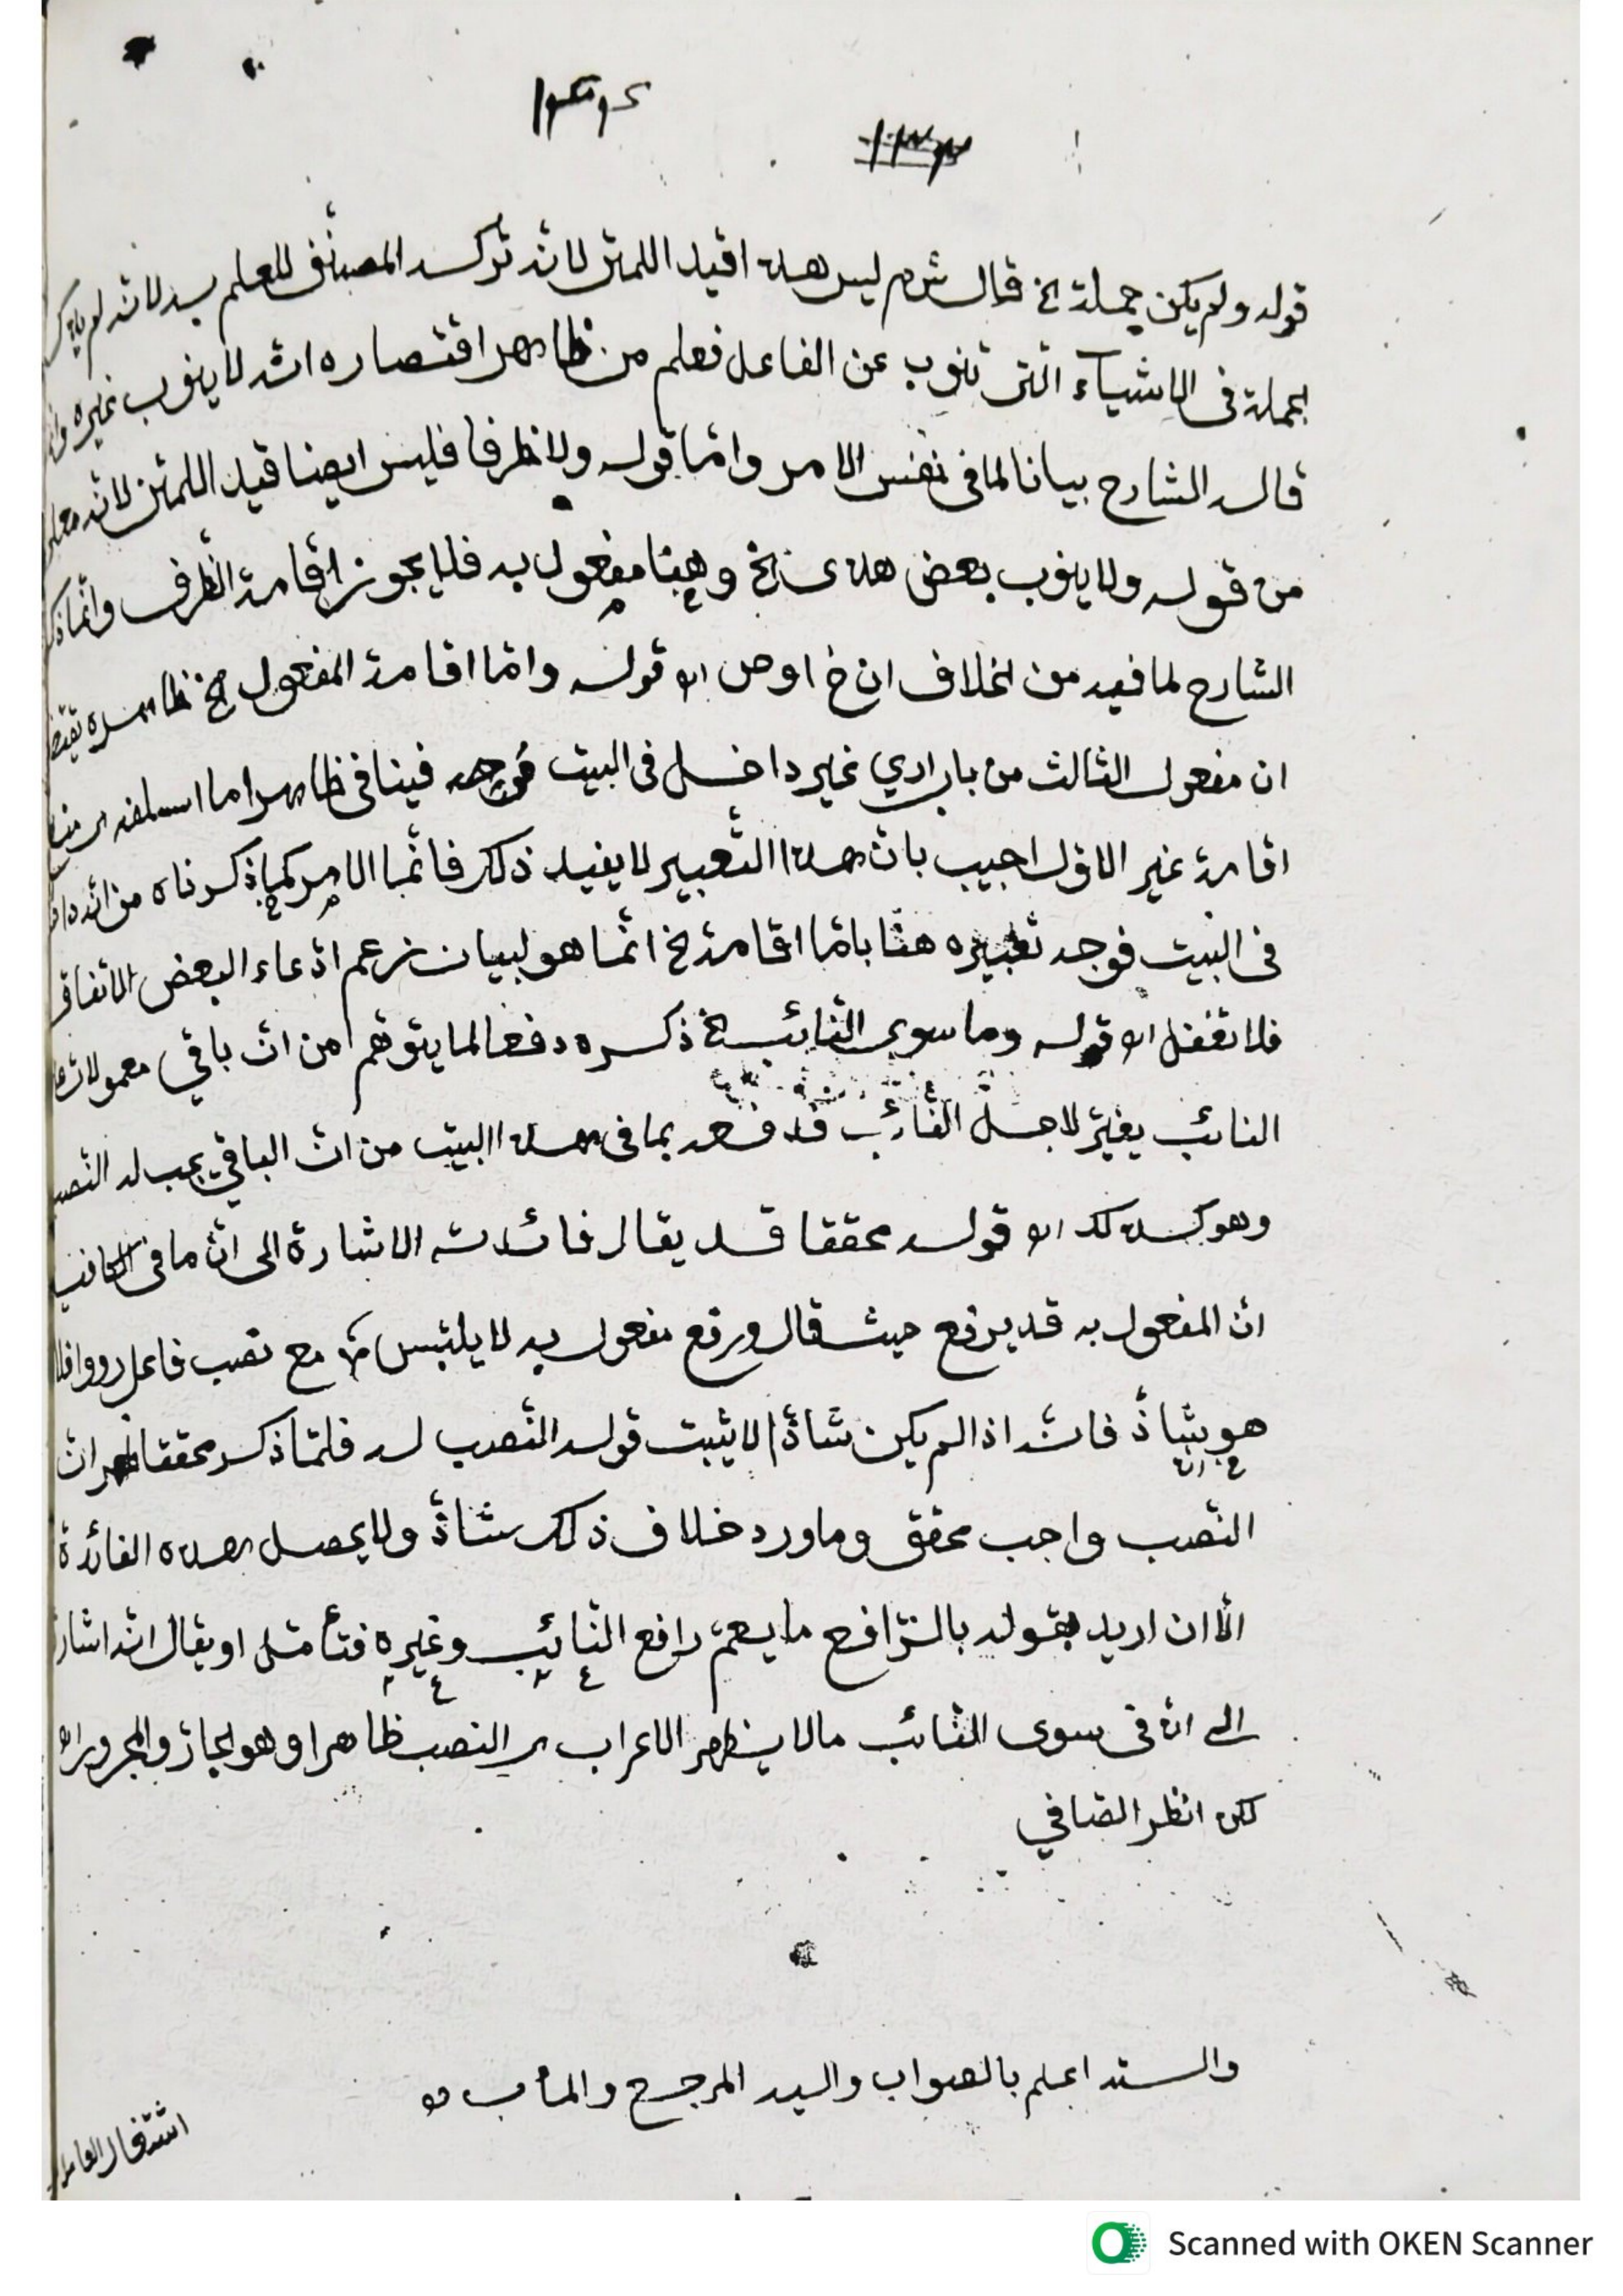 ١٣٣
قوله ولم يكن جملة الخ قال شم ليس هذا قيد اللمتن لانه ترك المصنف للعلم به لانه لم يذكر
الجملة في الاشياء التى تنوب عن الفاعل فعلم من ظاهر اقتصاره انه لا ينوب غيره
قال الشارح بيانا لما فى نفس الامر وامّا قوله ولا ظرفا فليس ايضا قيد اللمتن لانه
من قوله ولا ينوب بعض هذى الخ وهنا مفعول به فلا يجوز اقامة الظرف وانّما
الشارح لما فيه من الخلاف ان خ اوص اه قوله وامّا اقامة المفعول الخ ظاهره
ان مفعول الثالث من باب اري غير داخل فى البيت فينافى ظاهرا ما اسلفه
اقامة غير الاوّل اجيب بانّ هذا التّعبير لا يفيد ذلك فانّما الامر كما ذكرناه من انّه
فى البيت فوجه تعبيره هنّا بامّا اقامة الخ انّما هو لبيان زعم ادّعاء البعض الاتفاق
فلا تغفل اه قوله وما سوى النّائب الخ ذكره دفعا لما يتوهّم من انّ باقي معمولات
النائب يغيّر لاجل النّائب فدفعه بما فى هذا البيت من انّ الباقي يجب له النّصب
وهو كذلك اه قوله محققا قد يقال فائدته الاشارة الى انّ ما فى
انّ المفعول به قد يرفع حيث قال ورفع مفعول به لا يلتبس مع نصب فاعل رووا فلا
هو بشاذّ فانّه اذا لم يكن شاذّا لا يثبت قوله النّصب له فلمّا ذكر محققا انّ
النّصب واجب محقق وما ورد خلاف ذلك شاذّ ولا يحصل هذه الفائدة
الّا ان اريد بقوله بالرّافع ما يعمّ رافع النّائب وغيره فتأمّل او يقال انّه اشار
الى ان فى سوى النّائب مالا يظهر الاعراب النصب ظاهرا وهو الجارّ والمجرور اه
لكن انظر الصافي
والله اعلم بالصواب واليه المرجع والمأب
اشتغال العامل
Scanned with OKEN Scanner